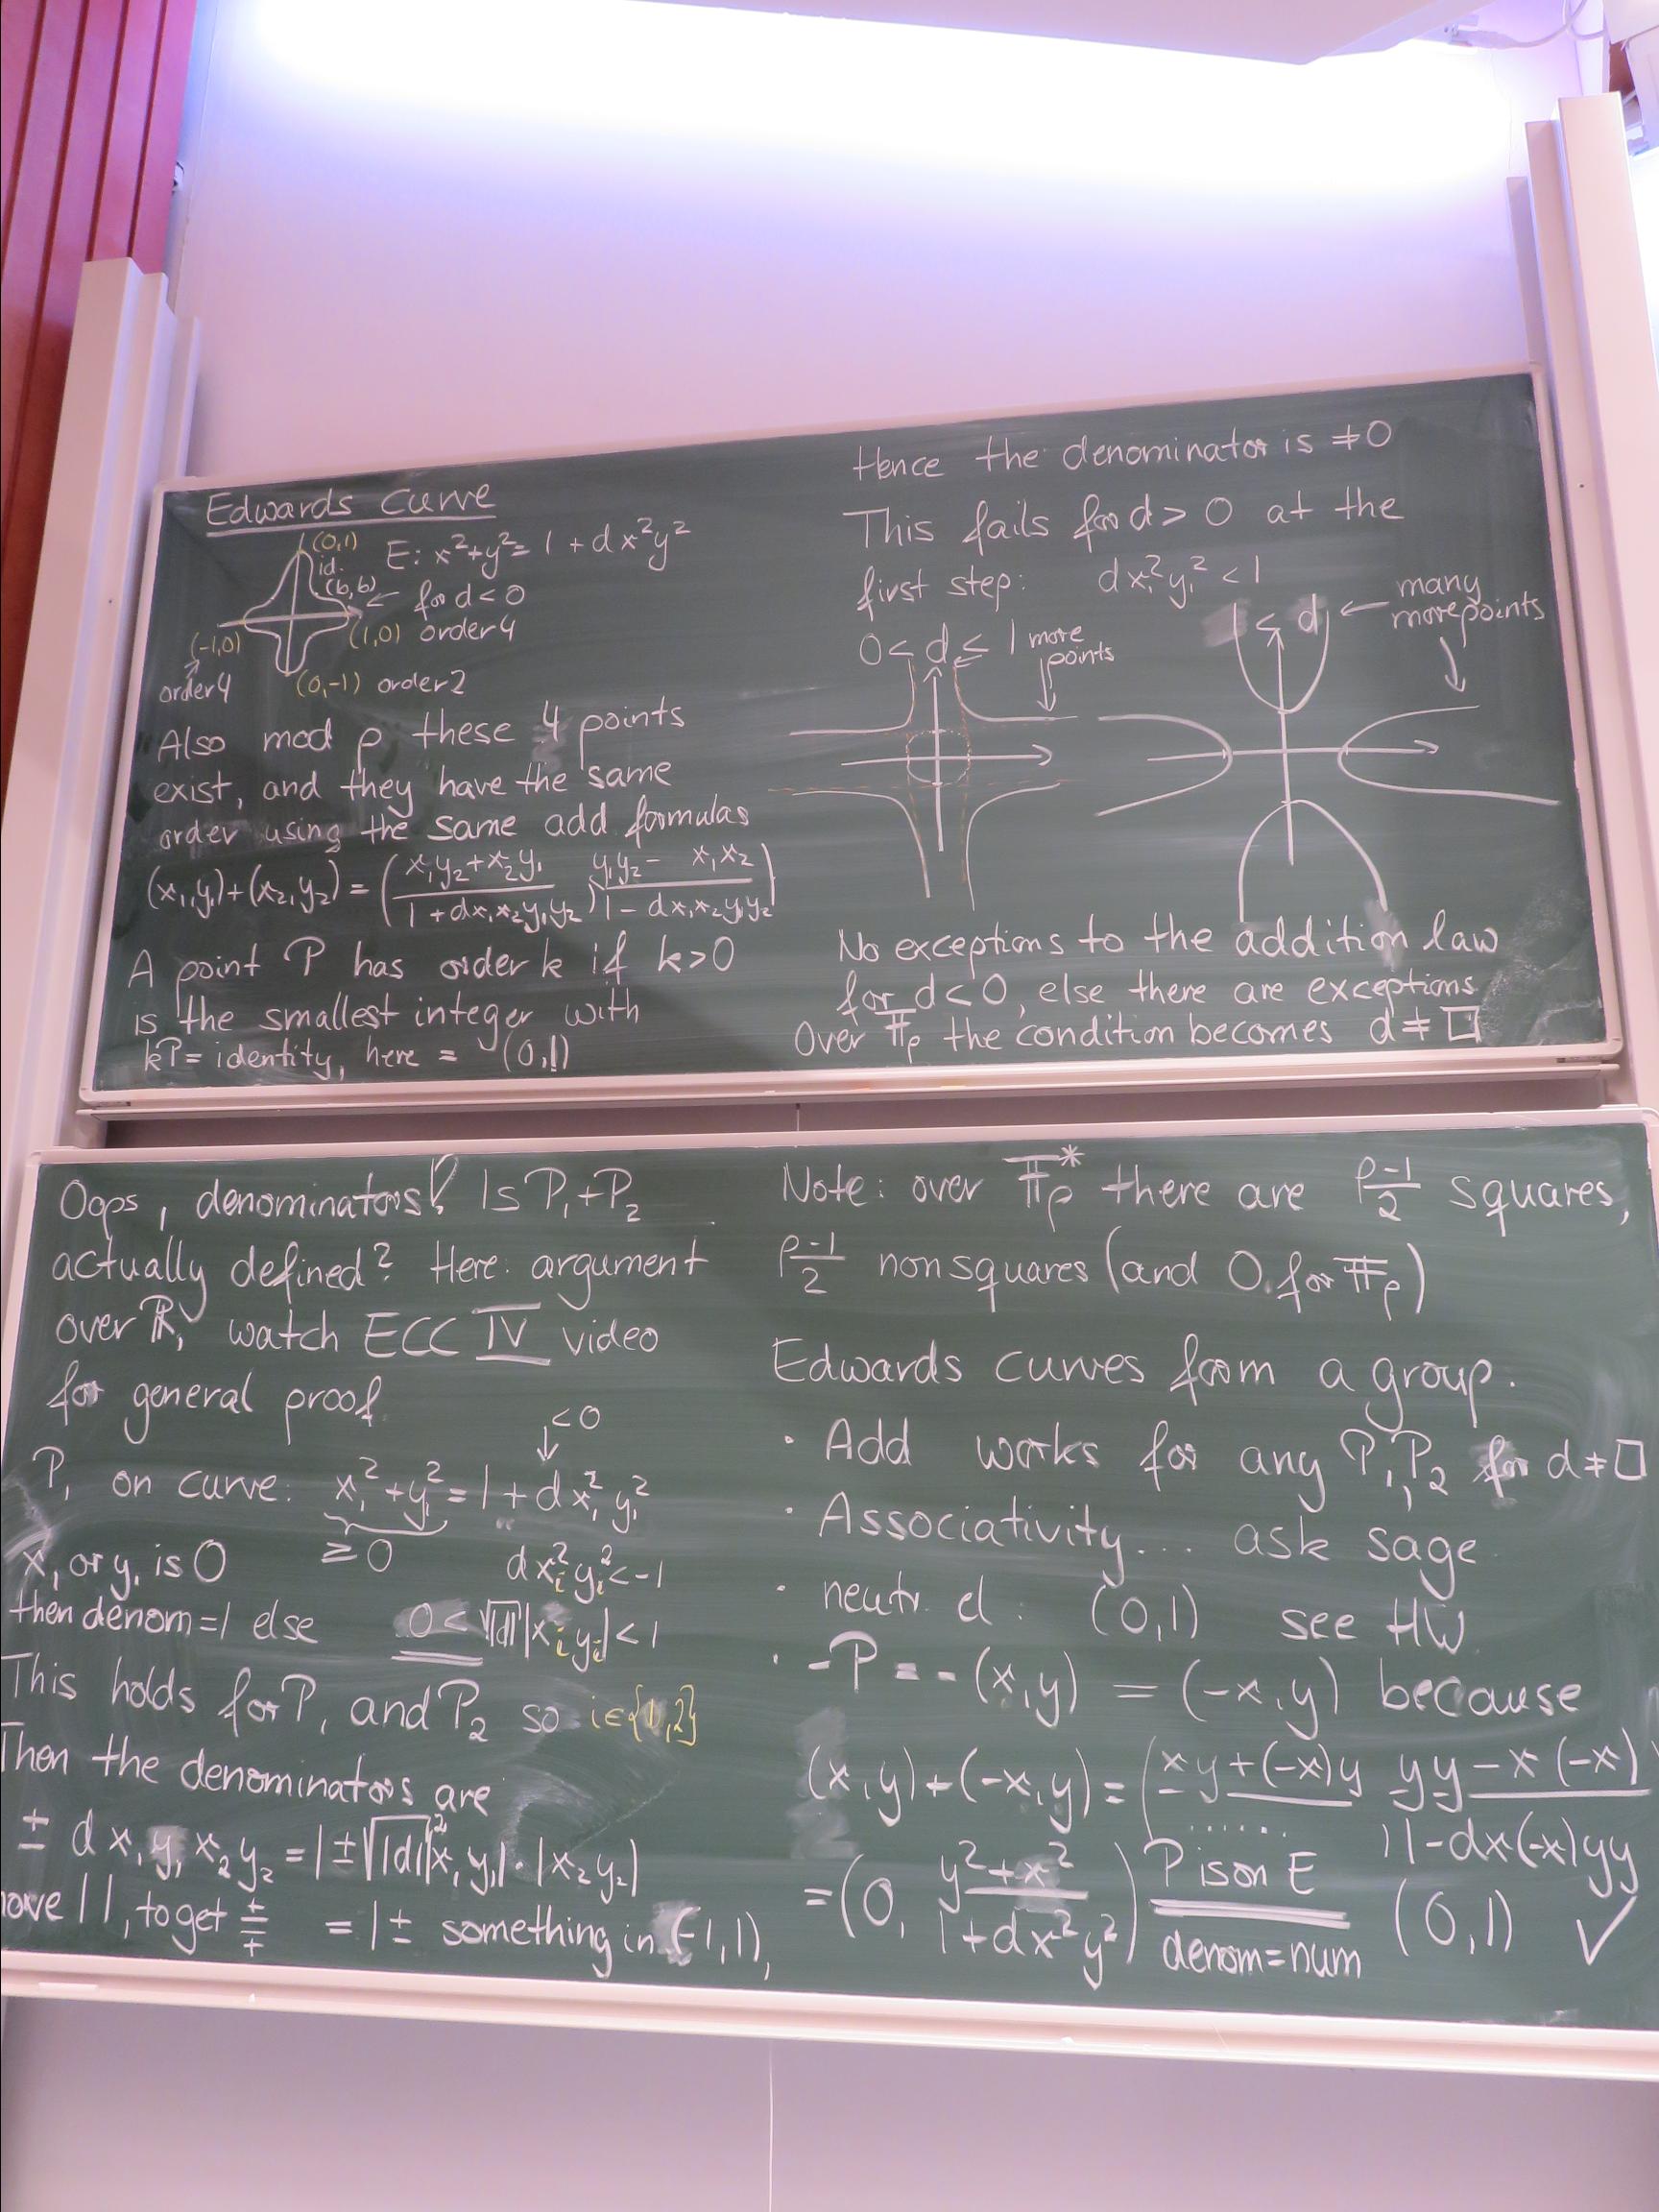 Edwards Curve
(0,1)
id.
E: x²+y²= 1 + dx²y²
(b,b) ← for d<0
(-1,0) (1,0) order 4
order 4 (0,-1) order 2
Also mod p these 4 points
exist, and they have the same
order using the same add formulas
(x₁,y₁)+(x₂,y₂) = ( (x₁y₂+x₂y₁)/(1+dx₁x₂y₁y₂) , (y₁y₂ - x₁x₂)/(1-dx₁x₂y₁y₂) )
A point P has order k if k>0
is the smallest integer with
kP= identity, here = (0,1)
Hence the denominator is ≠0
This fails for d > 0 at the
first step: dx₁²y₁² < 1
0 < d ≤ 1 more
points
1 < d ← many
more points
No exceptions to the addition law
for d<0, else there are exceptions
Over 𝔽ₚ the condition becomes d ≠ □
Oops, denominators! Is P₁+P₂
actually defined? Here: argument
over ℝ, watch ECC IV video
for general proof.
<0
P₁ on curve: x₁²+y₁²=1+dx₁²y₁²
x₁ or y₁ is 0 ≥0 dxᵢ²yᵢ²<-1
then denom=1 else 0<√|d||xᵢyᵢ|<1
This holds for P₁ and P₂ so i∈{1,2}
Then the denominators are
± dx₁y₁x₂y₂ =1±√|d|²|x₁y₁|·|x₂y₂|
move ||, to get ± = 1± something in (-1,1),
Note: over 𝔽ₚ* there are (p-1)/2 squares,
(p-1)/2 nonsquares (and 0 for 𝔽ₚ)
Edwards curves form a group.
· Add works for any P₁,P₂ for d≠□
· Associativity... ask sage
· neutr. el. : (0,1) see HW
· -P = -(x,y) = (-x,y) because
(x,y)+(-x,y) = ( (xy+(-x)y)/...... , (yy-x(-x))/(1-dx(-x)yy) )
=(0, (y²+x²)/(1+dx²y²)) P is on E || (0,1) ✓
denom=num